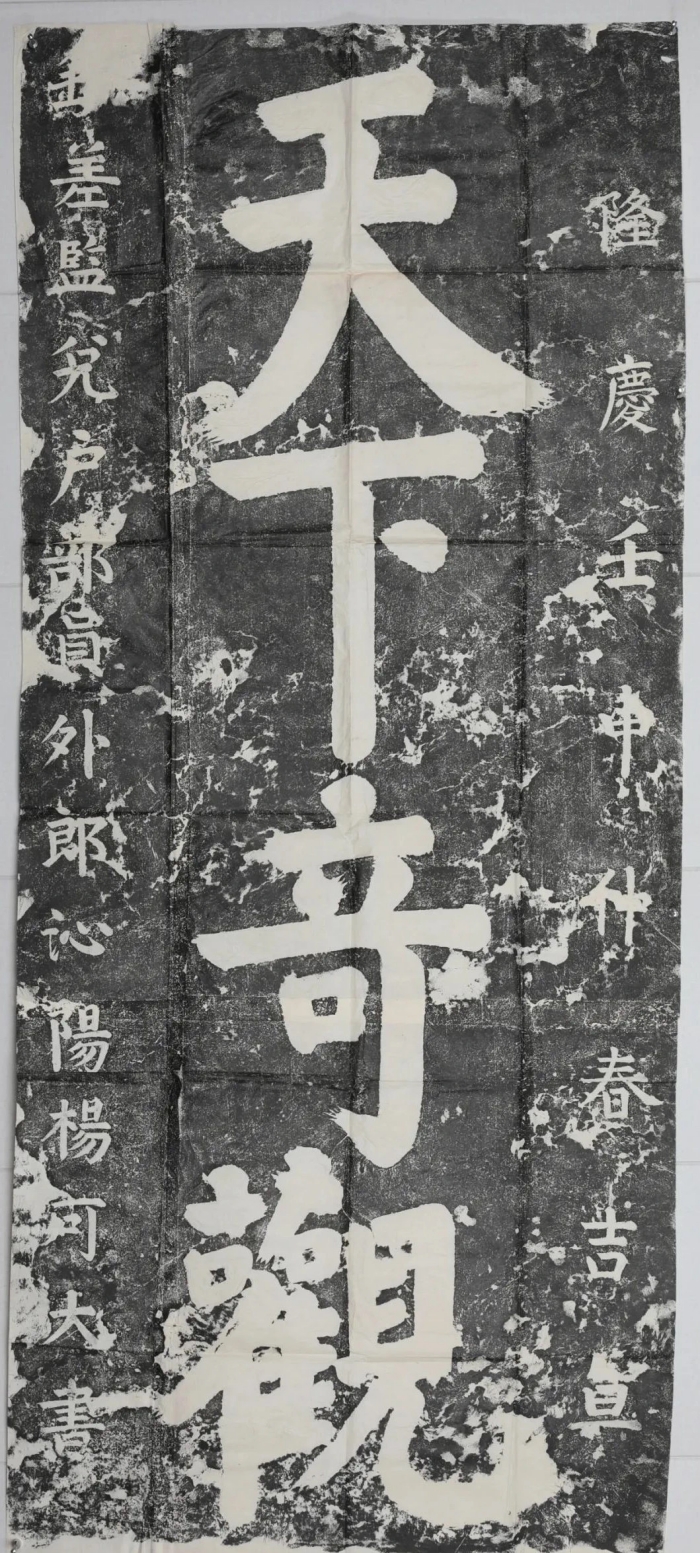 隆慶壬申仲春吉旦
天下奇觀
差監兌户部員外郎沁陽楊可大書